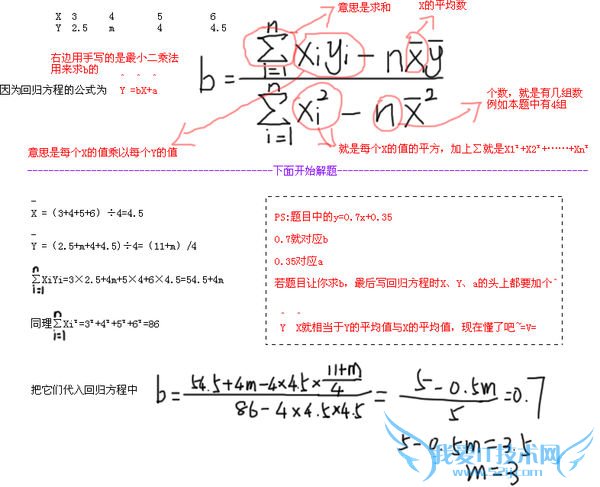 X 3 4 5 6
Y 2.5 m 4 4.5
意思是求和
X的平均数
右边用手写的是最小二乘法
用来求b的
因为回归方程的公式为 ^Y =^bX+^a
b= (∑(i=1→n) xiyi - nx̄ȳ) / (∑(i=1→n) xi² - nx̄²)
个数，就是有几组数
例如本题中有4组
意思是每个X的值乘以每个Y的值
就是每个X的值的平方，加上∑就是X1²+X2²+……+Xn²
下面开始解题
X̄ = (3+4+5+6) ÷4=4.5
Ȳ = (2.5+m+4+4.5)÷4= (11+m) /4
∑(i=1→n) XiYi=3×2.5+4m+5×4+6×4.5=54.5+4m
同理∑(i=1→n) Xi²=3²+4²+5²+6²=86
PS:题目中的y=0.7x+0.35
0.7就对应b
0.35对应a
若题目让你求b，最后写回归方程时X、Y、a的头上都要加个^
^Y ^X就相当于Y的平均值与X的平均值，现在懂了吧~=V=
把它们代入回归方程中
b= (54.5+4m-4×4.5×(11+m)/4) / (86-4×4.5×4.5) = (5-0.5m)/5 =0.7
5-0.5m=3.5
m=3
我爱IT技术网